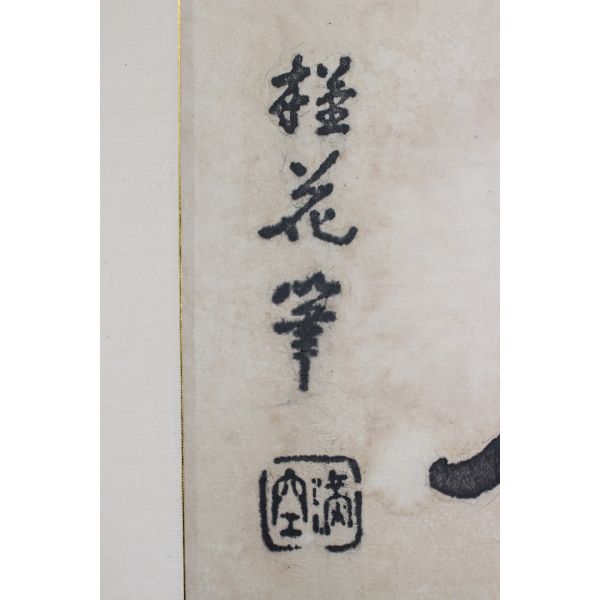 槿花筆
滿空